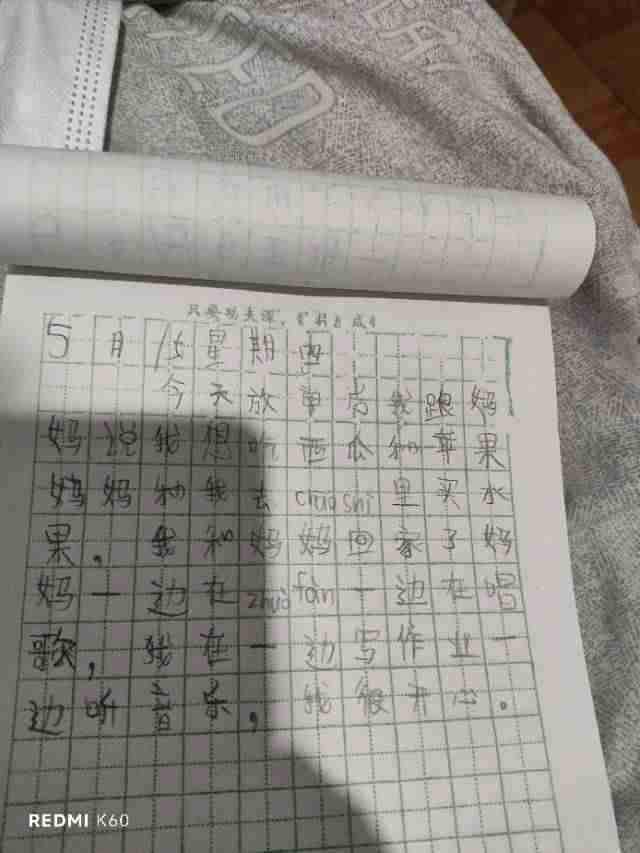 只要功夫深，
5月15星期四
今天放学后我跟妈
妈说我想吃西瓜和苹果
妈妈和我去chaoshi里买水
果。我和妈妈回家了妈
妈一边在zhuòfàn一边在唱
歌，我在一边写作业一
边听音乐，我很开心。
REDMI K60